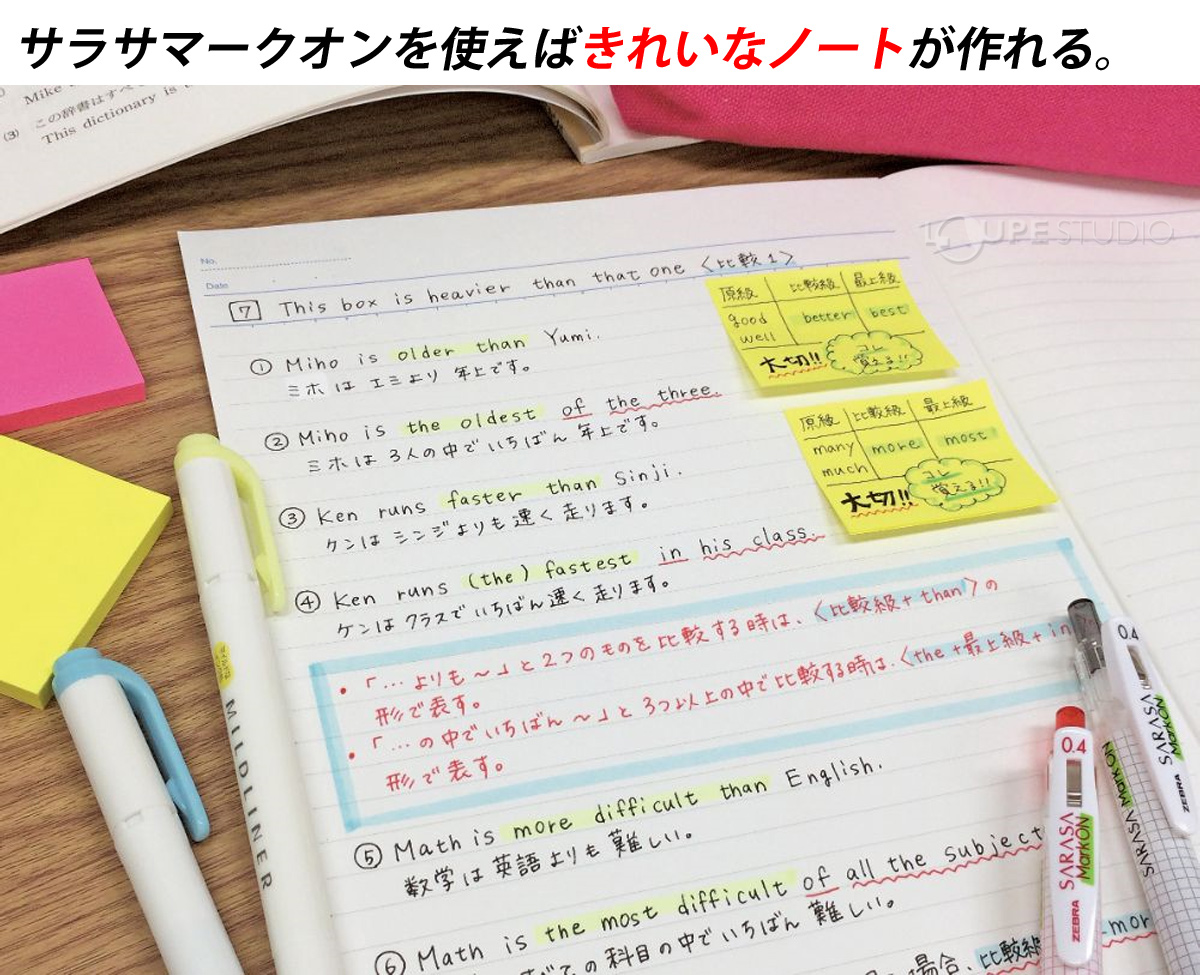 サラサマークオンを使えばきれいなノートが作れる。
Mike
(3) この辞書はすべ
This dictionary is
LOUPE STUDIO
No.
Date
7 This box is heavier than that one 〈比較1〉
① Miho is older than Yumi.
ミホは エミより 年上です。
② Miho is the oldest of the three.
ミホは 3人の中で いちばん 年上です。
③ Ken runs faster than Sinji.
ケンは シンジよりも 速く 走ります。
④ Ken runs (the) fastest in his class.
ケンは クラスで いちばん 速く 走ります。
原級 比較級 最上級
good better best
well
大切!! コレ
覚える!!
原級 比較級 最上級
many more most
much
大切!! コレ
覚える!!
・「…よりも〜」と2つのものを比較する時は、〈比較級+than〉の
形で表す。
・「…の中でいちばん〜」と3つ以上の中で比較する時は、〈the+最上級+in
形で表す。
⑤ Math is more difficult than English.
数学は 英語よりも 難しい。
⑥ Math is the most difficult of all the subject
の科目の中で いちばん 難しい。
場合、比較級
mor
MILDLINER
0.4
SARASA
MarkON
ZEBRA
0.4
SARASA
MarkON
ZEBRA
SARASA MarkON